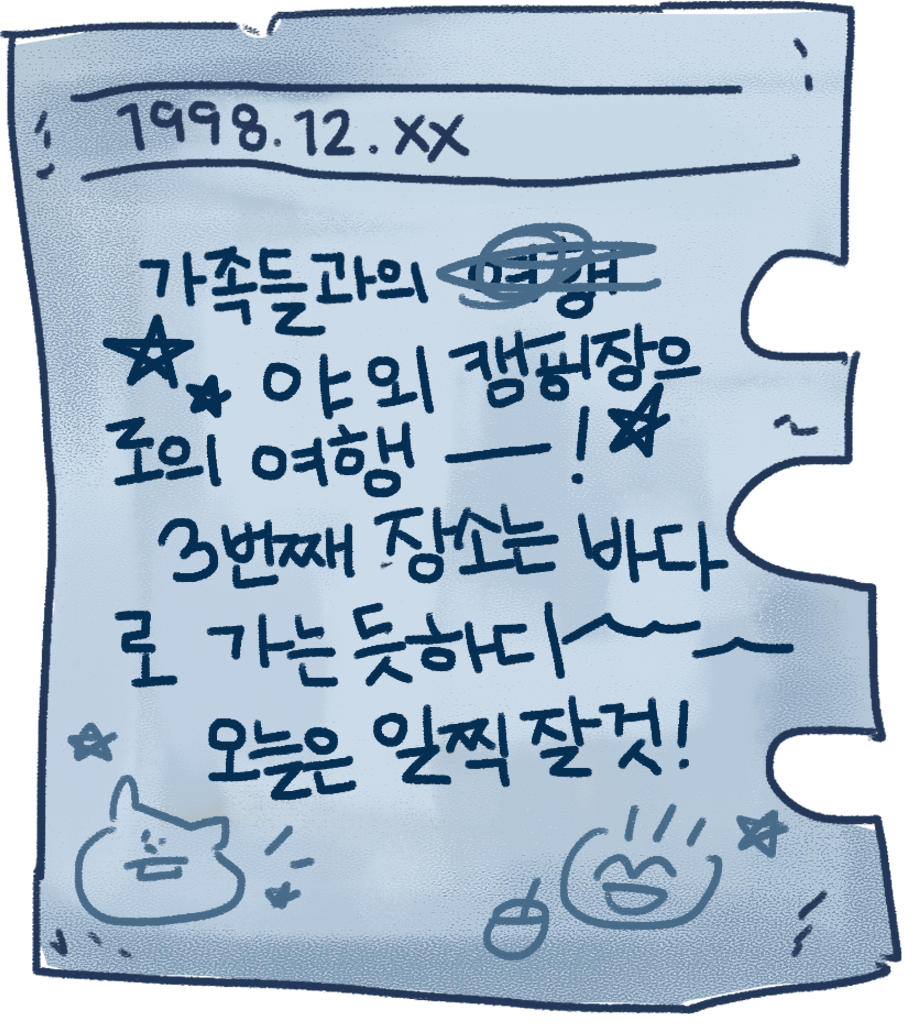 1998.12.XX
가족들과의 여행
야외 캠핑장으
로의 여행 ㅡ!
3번째 장소는 바다
로 가는듯하다~~
오늘은 일찍 잘것!